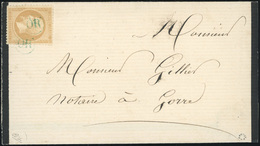 OR
OR
Monsieur
Monsieur Gillier
Notaire à Gorre